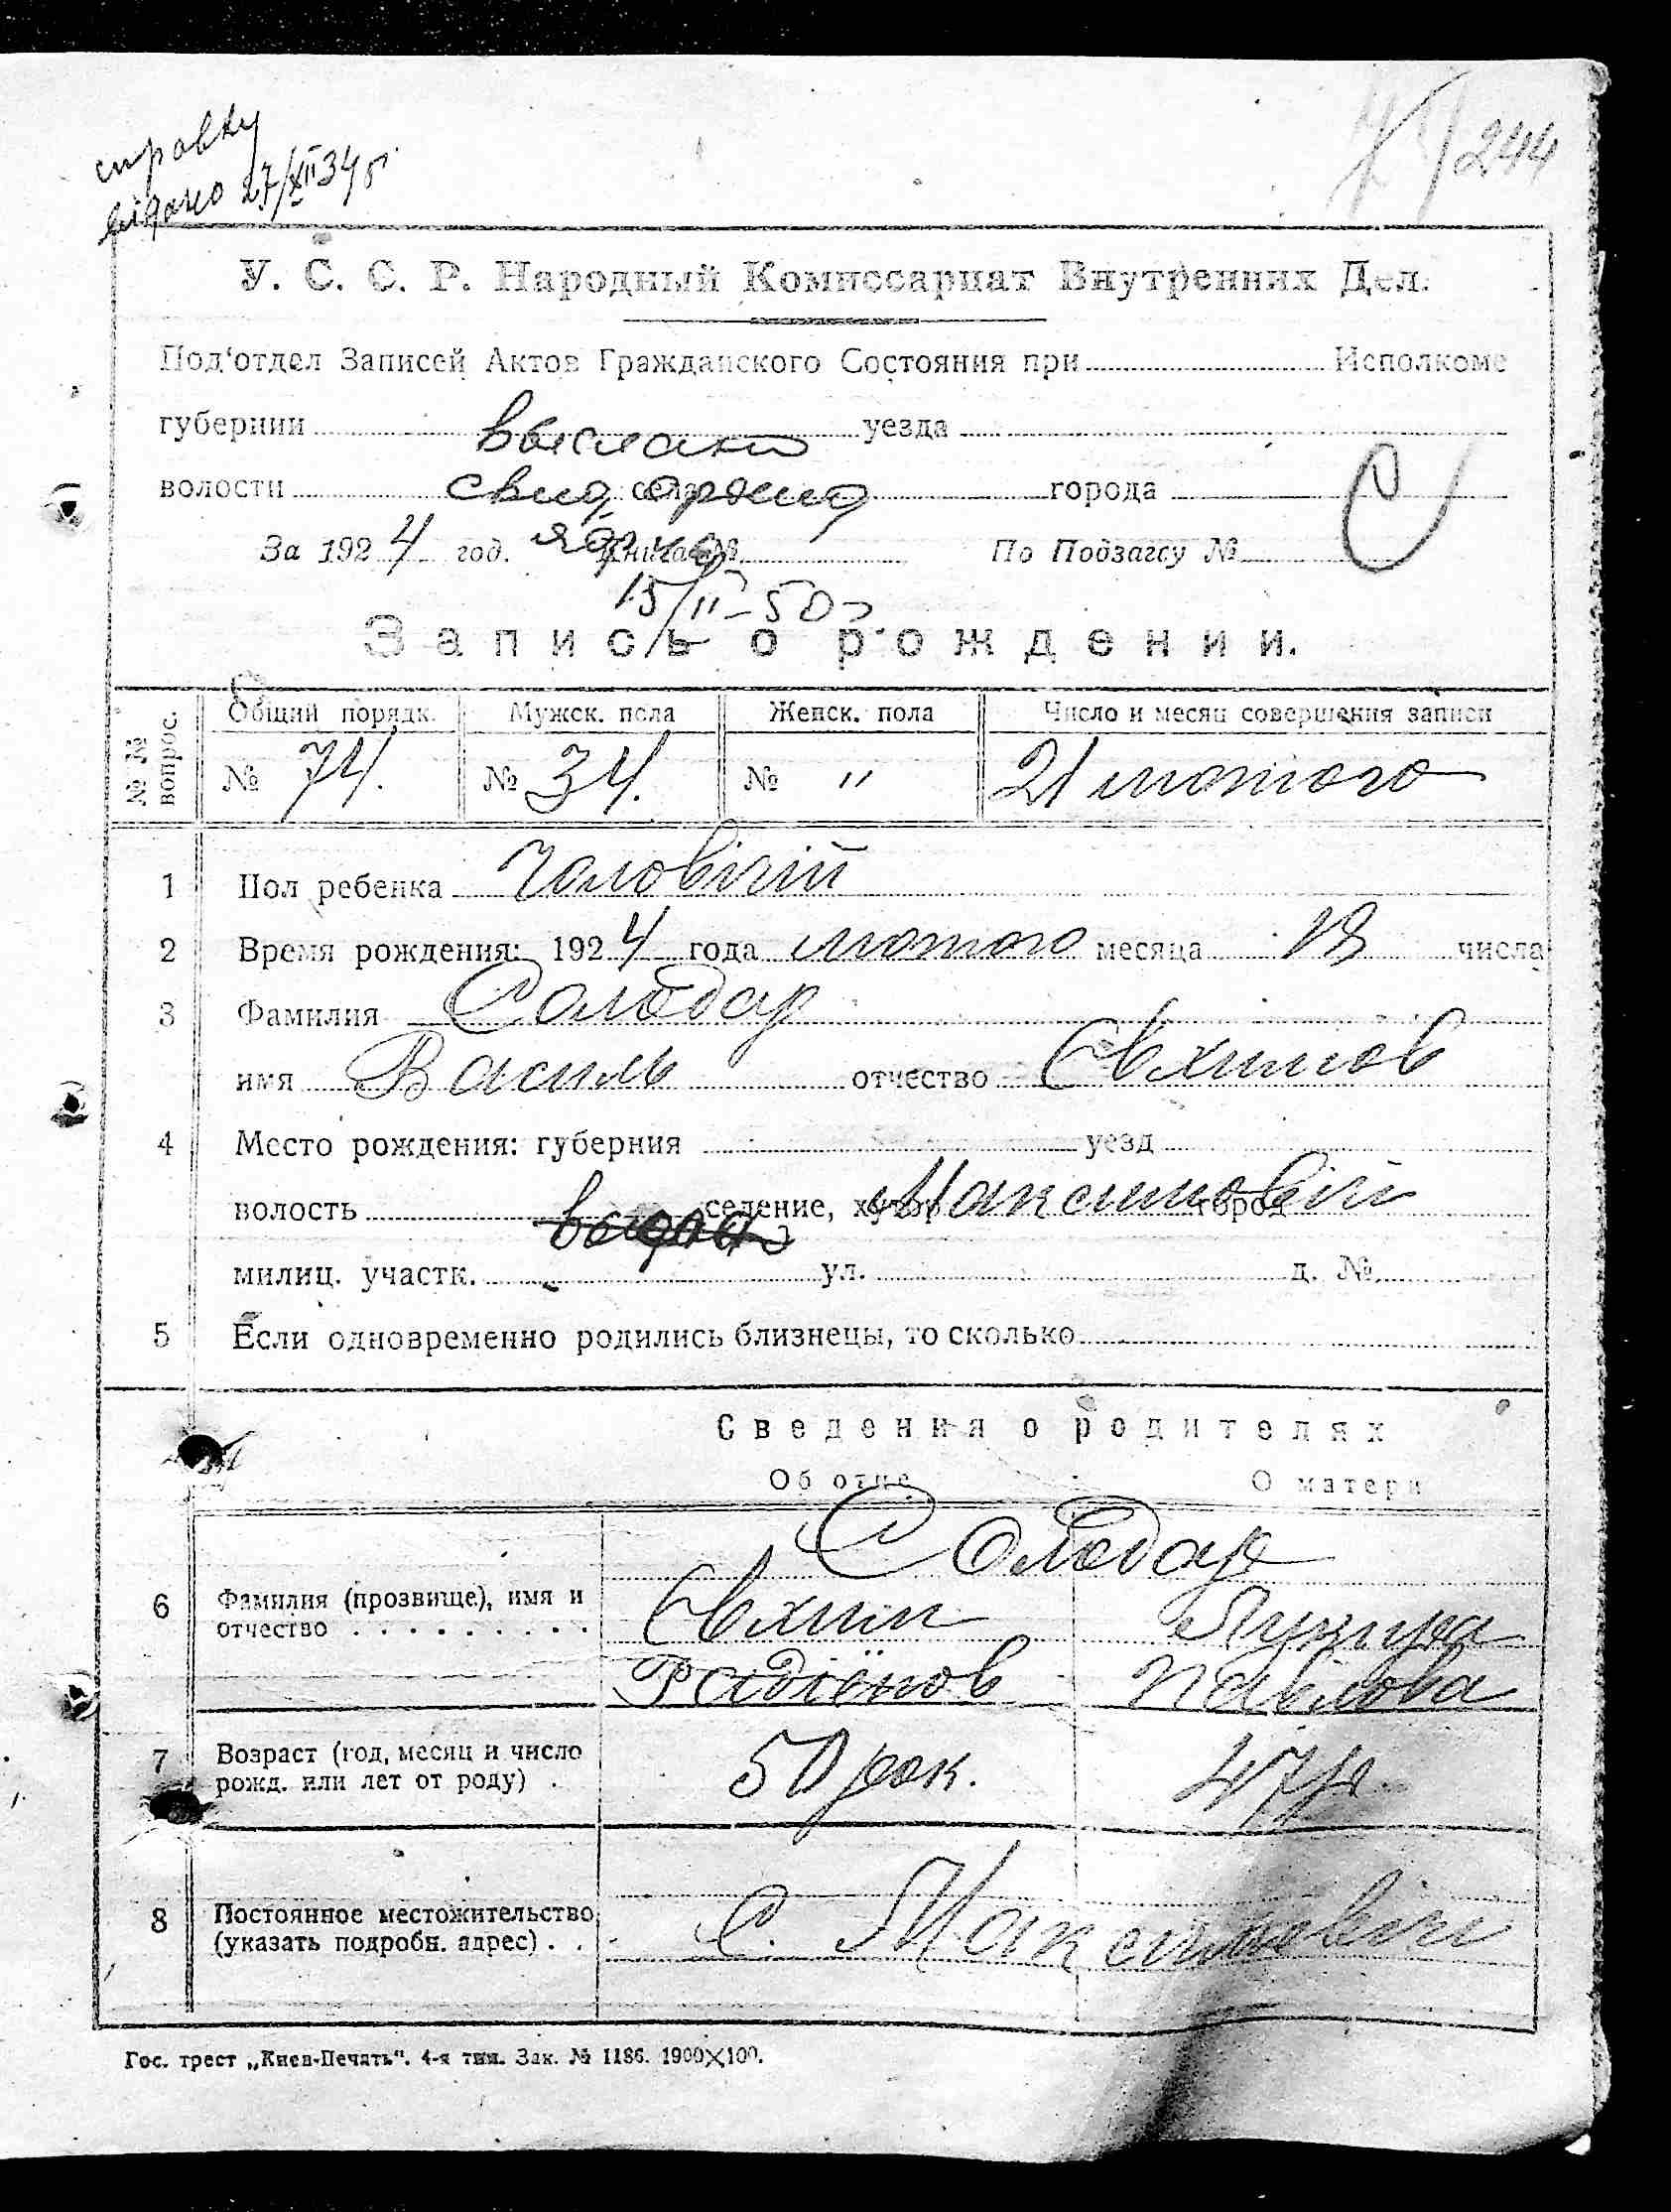 справку
видано 27/XII 34 р.
244
У. С. С. Р. Народный Комиссариат Внутренних Дел.
Под‘отдел Записей Актов Гражданского Состояния при Исполкоме
губернии уезда
выслано
волости села города
свид
За 1924 год. Книга № По Подзагсу №
15/II-50 г.
Запись о рождении.
№ № вопрос. Общий порядк. Мужск. пола Женск. пола Число и месяц совершения записи
№ 74. № 34. № " 21 лютого
1 Пол ребенка Чоловічий
2 Время рождения: 1924 года лютого месяца 18 числа
3 Фамилия Солодар
имя Василь отчество Євхимов
4 Место рождения: губерния уезд
волость селение, хутор город Максимовічі
милиц. участк. ул. д. №
5 Если одновременно родились близнецы, то сколько
Сведения о родителях
Об отце О матери
Солодар
6 Фамилия (прозвище), имя и отчество Євхим
Радіёнов Павлова
7 Возраст (год, месяц и число рожд. или лет от роду) 50 рок. 47 р.
8 Постоянное местожительство (указать подробн. адрес) С. Максимовічі
Гос. трест „Киев-Печать“. 4-я тип. Зак. № 1186. 1900×100.